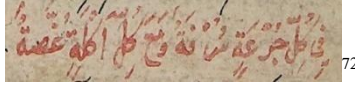 فِي كُلِّ جُرْعَةٍ شَرْقَةٌ وَمَعَ كُلِّ اَكْلَةٍ غُصَّةٌ
72